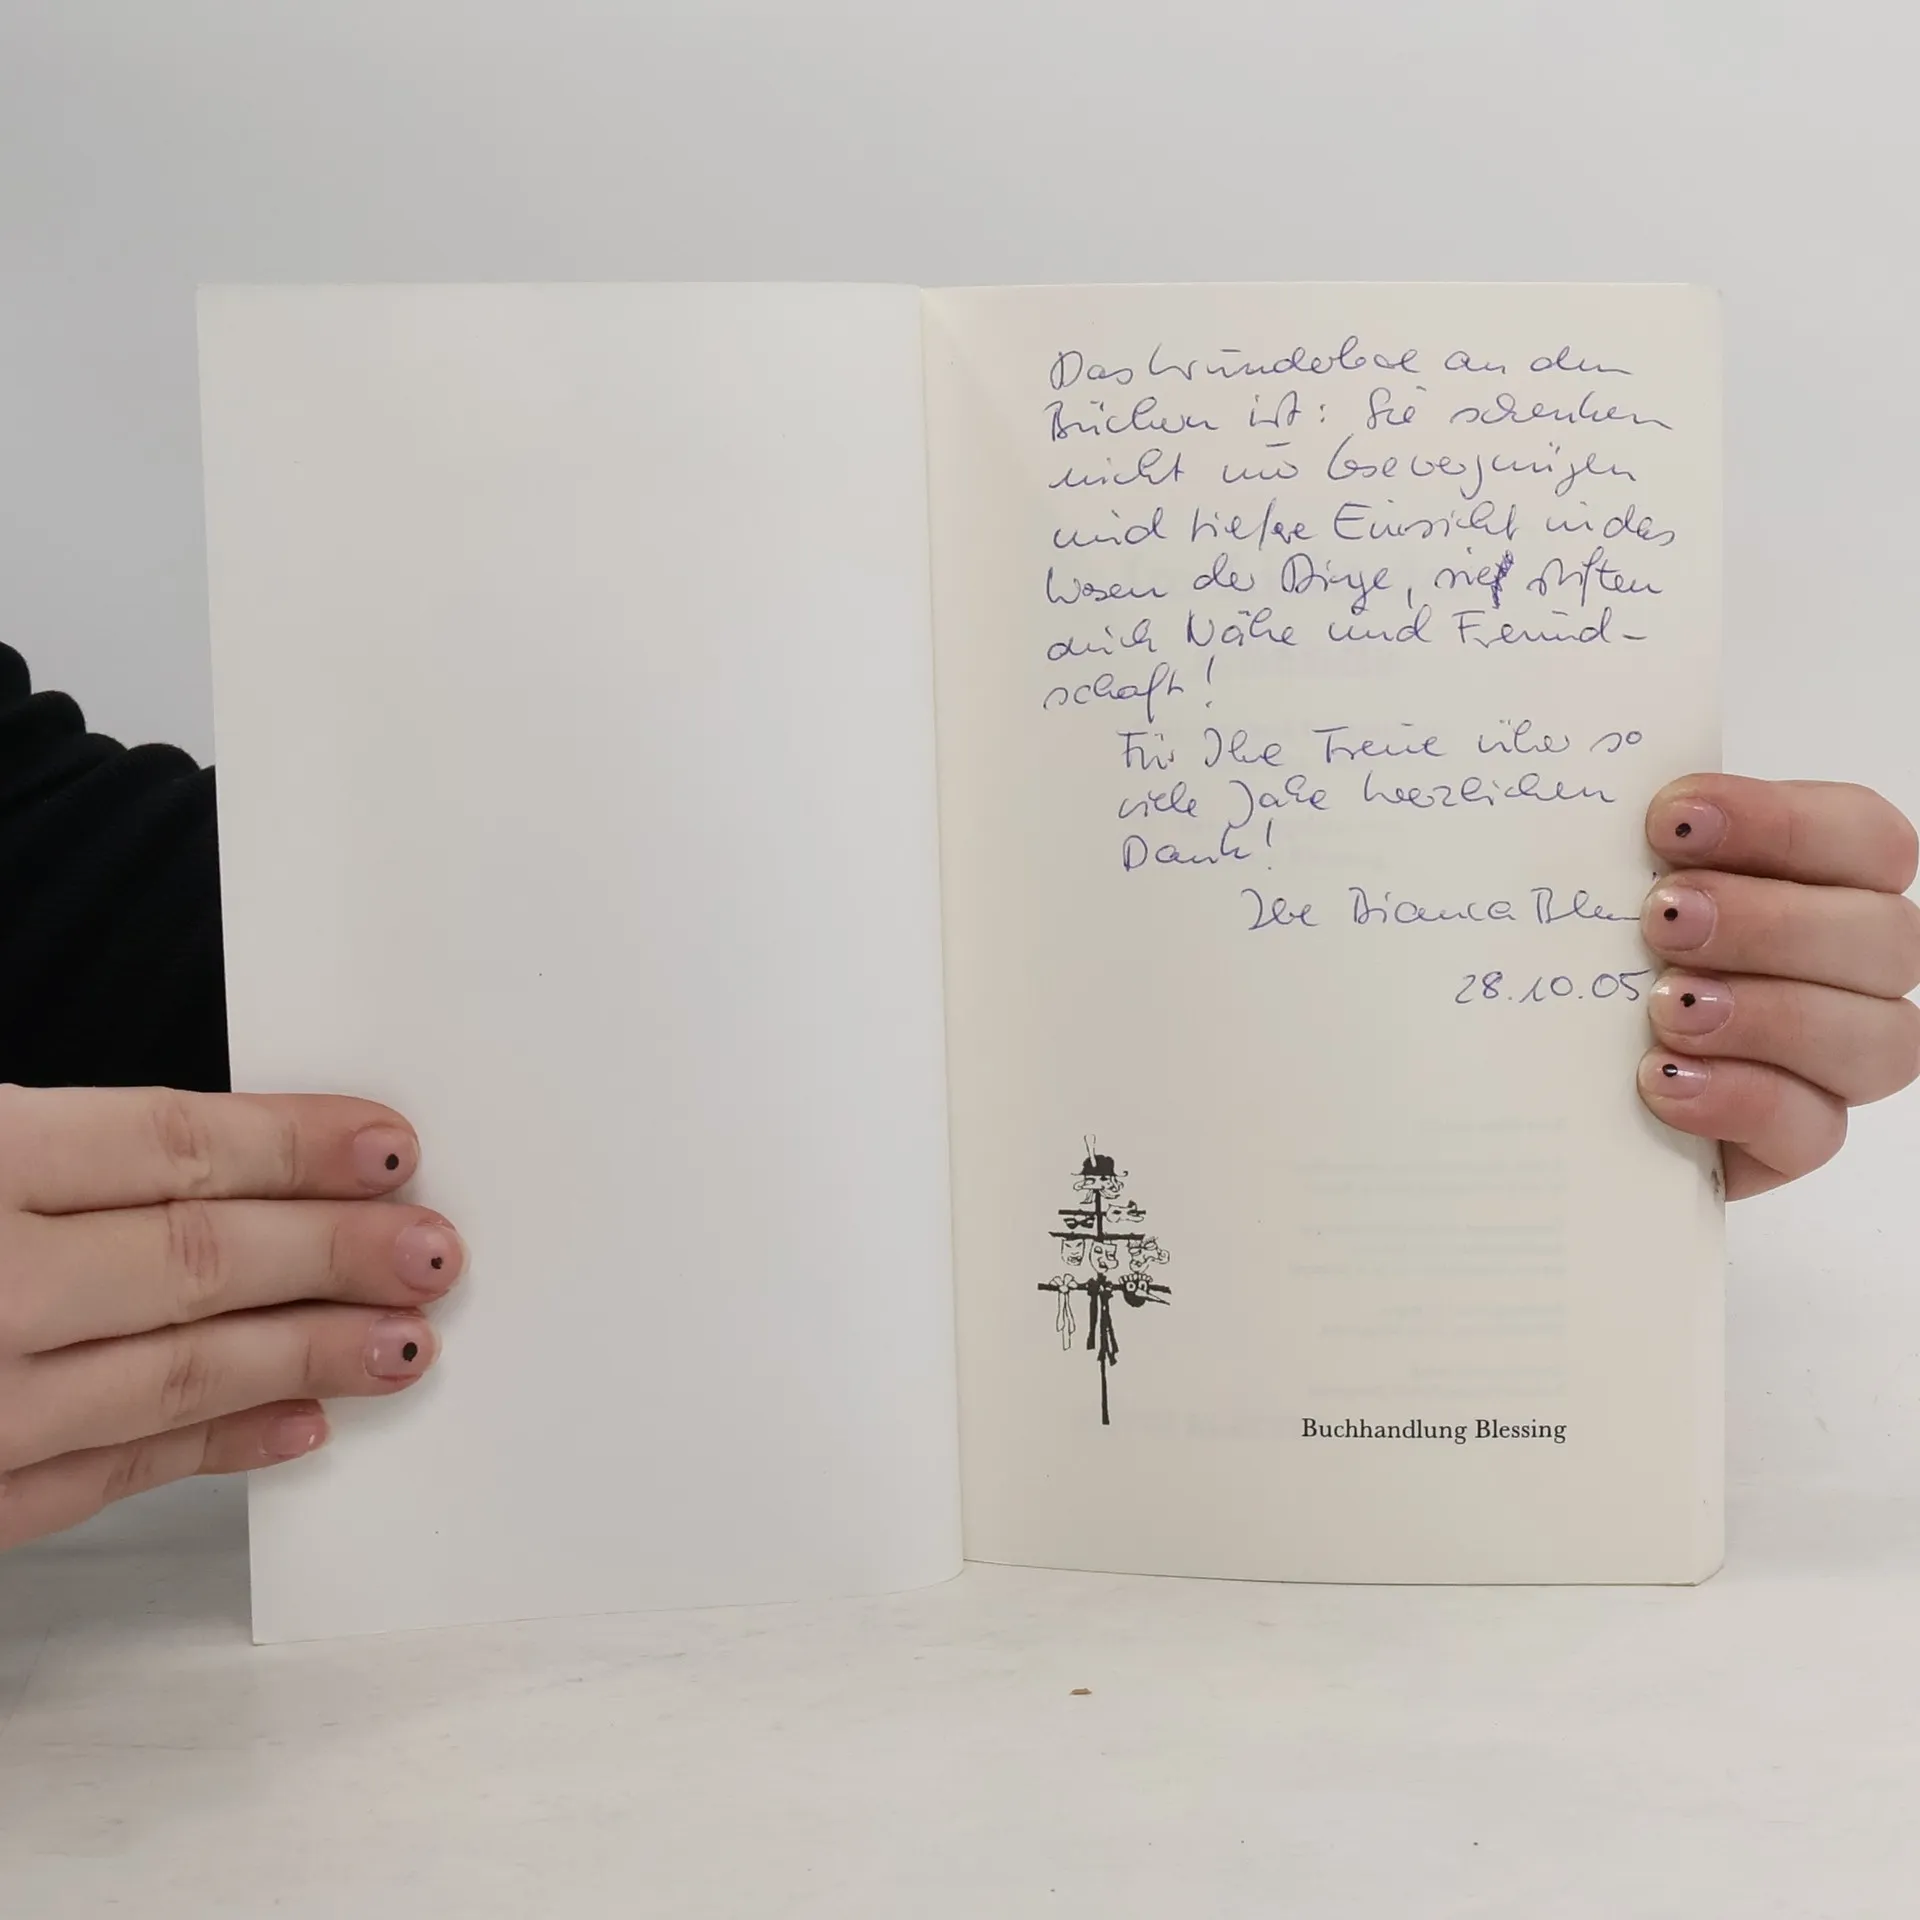 Das Wunderbare an den
Büchern ist: Sie schenken
nicht nur Lesevergnügen
und tiefere Einsicht in das
Wesen der Dinge, sie stiften
auch Nähe und Freund-
schaft!
Für Ihre Treue über so
viele Jahre herzlichen
Dank!
Ihre Bianca
28.10.05
Buchhandlung Blessing